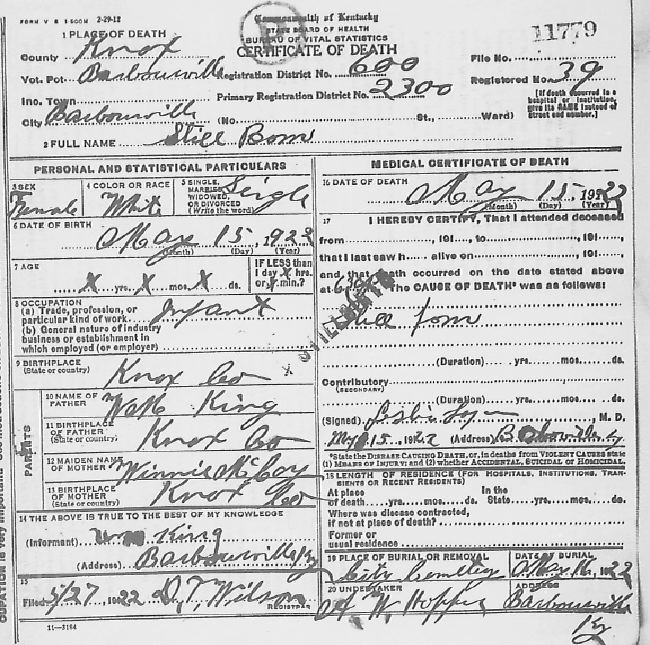 FORM V S 1-500M 2-29-12
Commonwealth of Kentucky
STATE BOARD OF HEALTH
BUREAU OF VITAL STATISTICS
CERTIFICATE OF DEATH
11779
1 PLACE OF DEATH
County Knox
Vot. Pct. Barbourville Registration District No. 600 File No.
Inc. Town Primary Registration District No. 2300 Registered No. 39
City Barbourville (No. St., Ward)
[If death occurred in a hospital or institution, give its NAME instead of street and number.]
2 FULL NAME Still Born
PERSONAL AND STATISTICAL PARTICULARS
3 SEX Female
4 COLOR OR RACE White
5 SINGLE, MARRIED, WIDOWED, OR DIVORCED (Write the word) Single
6 DATE OF BIRTH May 15, 1922
(Month) (Day) (Year)
7 AGE x yrs. x mos. x ds.
IF LESS than 1 day x hrs. or x min.?
8 OCCUPATION
(a) Trade, profession, or particular kind of work Infant
(b) General nature of industry business or establishment in which employed (or employer)
9 BIRTHPLACE (State or country) Knox Co
PARENTS
10 NAME OF FATHER King
11 BIRTHPLACE OF FATHER (State or country) Knox Co
12 MAIDEN NAME OF MOTHER Winnie McCoy
13 BIRTHPLACE OF MOTHER (State or country) Knox Co
14 THE ABOVE IS TRUE TO THE BEST OF MY KNOWLEDGE
(Informant) King
(Address) Barbourville Ky
15 Filed 5/27 1922 D.T. Wilson
REGISTRAR
11-3184
MEDICAL CERTIFICATE OF DEATH
16 DATE OF DEATH May 15, 1922
(Month) (Day) (Year)
17 I HEREBY CERTIFY, That I attended deceased
from , 191 , to , 191 ,
that I last saw h alive on , 191 ,
and that death occurred on the date stated above
at The CAUSE OF DEATH* was as follows:
Still born
STILLBIRTH
(Duration) yrs. mos. ds.
Contributory
(SECONDARY)
(Duration) yrs. mos. ds.
(Signed) Leslie Logan M. D.
May 15, 1922 (Address) Barbourville Ky
*State the DISEASE CAUSING DEATH, or, in deaths from VIOLENT CAUSES state (1) MEANS OF INJURY; and (2) whether ACCIDENTAL, SUICIDAL OR HOMICIDAL.
18 LENGTH OF RESIDENCE (FOR HOSPITALS, INSTITUTIONS, TRANSIENTS OR RECENT RESIDENTS)
At place of death yrs. mos. ds. In the State yrs. mos. ds.
Where was disease contracted, if not at place of death?
Former or usual residence
19 PLACE OF BURIAL OR REMOVAL City Cemetery
DATE OF BURIAL May 16, 1922
20 UNDERTAKER W. Hopper
ADDRESS Barbourville Ky